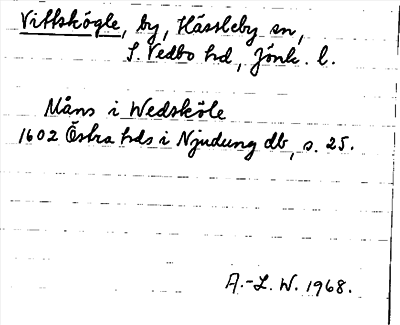 Vittskögle, by, Hässleby sn,
S. Vedbo hd, Jönk. l.
Måns i Wedsköle
1602 Östra hds i Njudung db, s. 25.
A.-L. W. 1968.